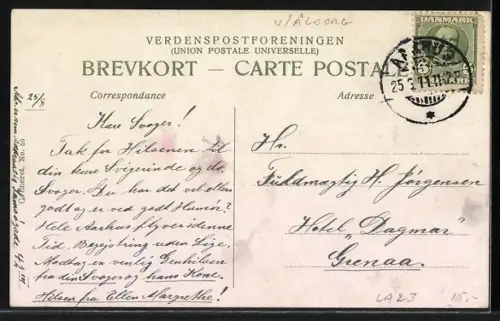 v/ÅLBORG
VERDENSPOSTFORENINGEN
(UNION POSTALE UNIVERSELLE)
BREVKORT — CARTE POSTALE
DANMARK
AARHUS
Correspondance
Adresse
25/8
Kære Svoger!
Tak for Hilsenen til
din kære Svigerinde og do.
Svoger. Du har det vel ellers
godt og er ved godt Humør?
Hele Aarhus flyver i denne
Tid. Begejstring uden Lige.
Modtag en venlig Genhilsen
fra din Svoger og hans Kone.
Hilsen fra Ellen Margrethe!
Eneret. No. 60
Hr.
Fuldmægtig H. Jörgensen
Hotel "Dagmar"
Grenaa.
LA23
15,-